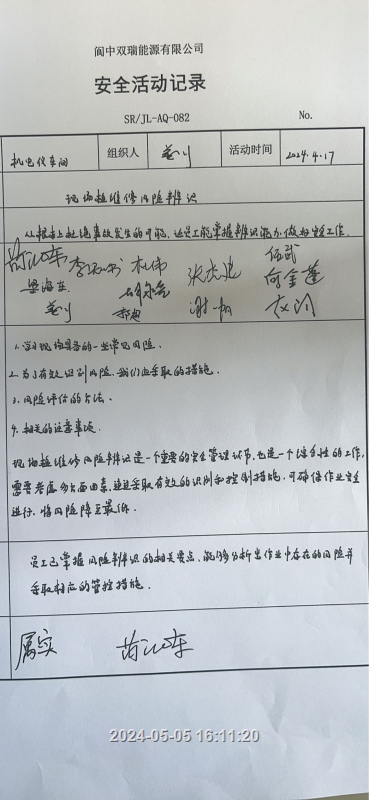 阆中双瑞能源有限公司
安全活动记录
SR/JL-AQ-082 No.
机电仪车间 组织人 活动时间 2024.4.17
现场检维修风险辨识
从根本上杜绝事故发生的可能,让员工能掌握辨识能力,做好安全工作.
李 伟 张 伍武
梁海 何金莲
谢
1.学习现场具备的一些常见风险.
2.为了有效识别风险,我们应采取的措施.
3.风险评估的方法.
4.相关的注意事项.
现场检维修风险辨识是一个重要的安全管理环节,也是一个综合性的工作,
需要考虑多方面因素,通过采取有效的识别和控制措施,可确保作业安全
进行,将风险降至最低.
员工已掌握风险辨识的相关要点,能够分析出作业中存在的风险并
采取相应的管控措施.
属实
2024-05-05 16:11:20